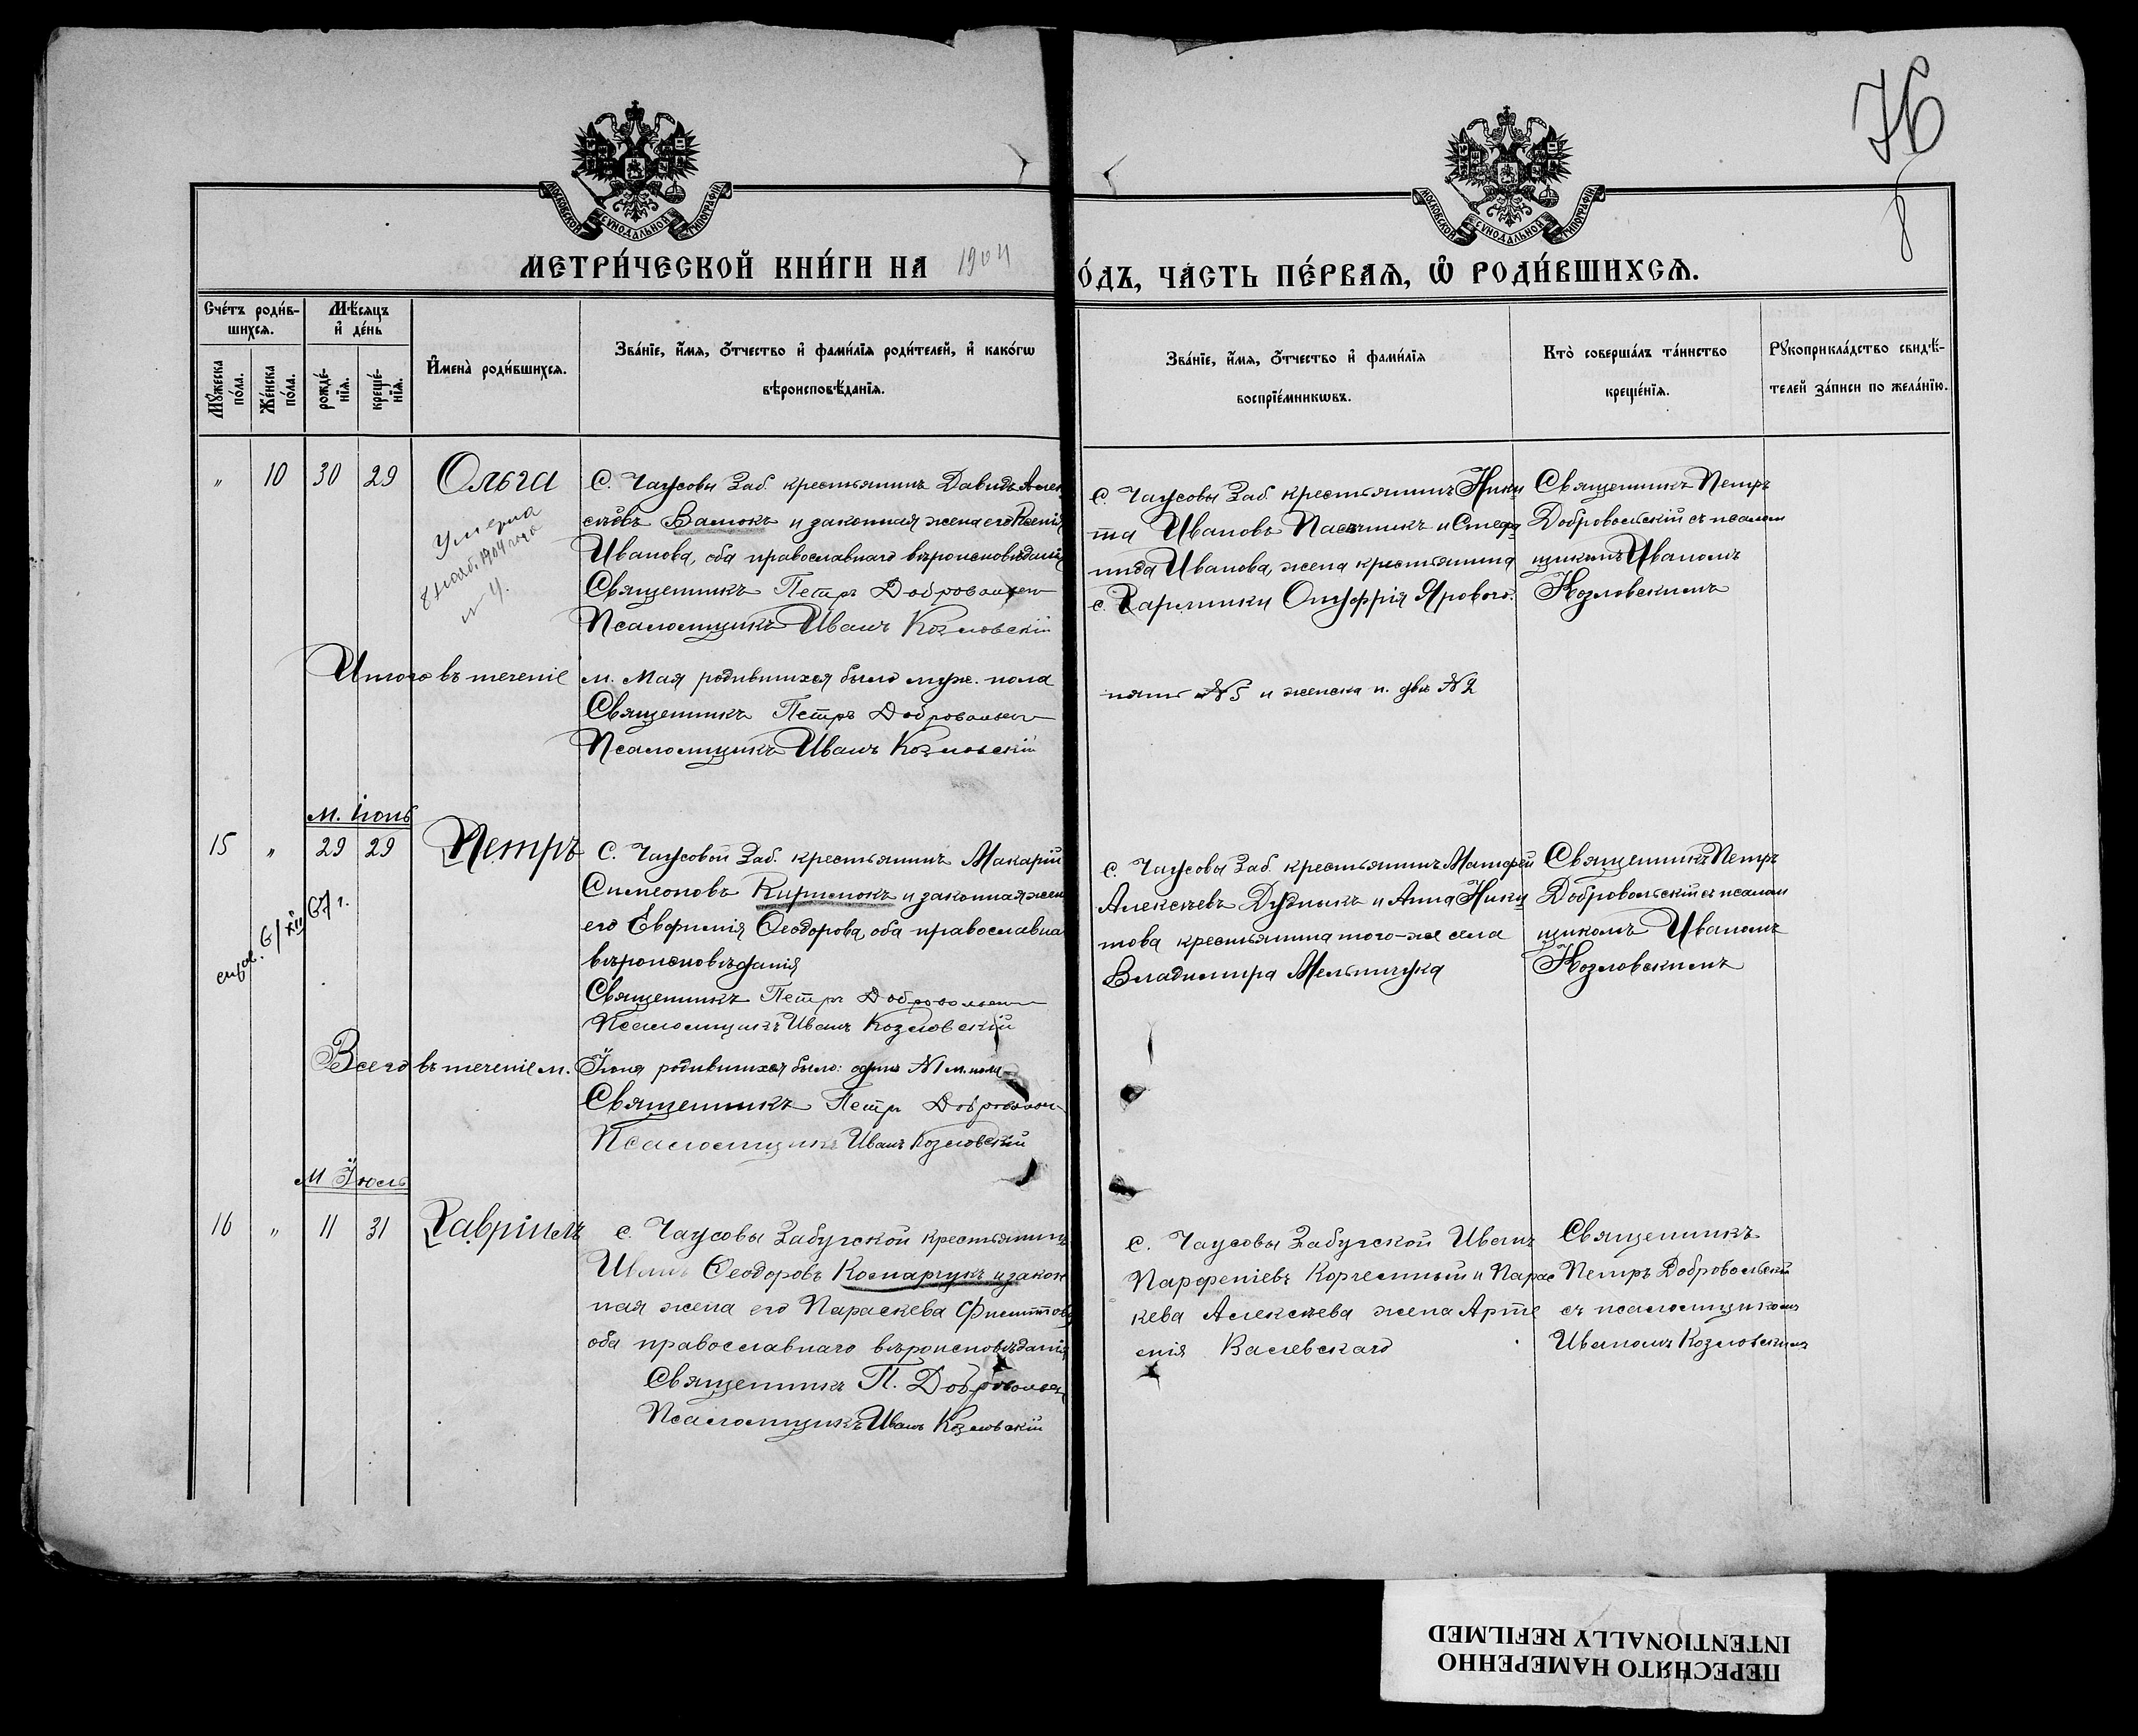 76
8
МОСКОВСКОЙ СѴНОДАЛЬНОЙ ТИПОГРАФІИ
МОСКОВСКОЙ СѴНОДАЛЬНОЙ ТИПОГРАФІИ
МЕТРИ́ЧЕСКОЙ КНИ́ГИ НА 1904
О́ДЪ, ЧА́СТЬ ПЕ́РВАѦ, Ѽ РОДИ́ВШИХСѦ.
Сче́тъ роди́в-
шихсѧ.
Мꙋжеска по́ла.
Же́нска по́ла.
Мѣ́сѧцъ и҆ де́нь
рожде́-
нїѧ.
креще́-
нїѧ.
И҆мена̀ роди́вшихсѧ.
Зва́нїе, и҆́мѧ, ѻ҆́тчество и҆ фами́лїѧ роди́телей, и҆ како́гѡ
вѣроисповѣ́данїѧ.
Зва́нїе, и҆́мѧ, ѻ҆́тчество и҆ фами́лїѧ
воспрїе́мникѡвъ.
Кто̀ соверша́лъ та́инство
креще́нїѧ.
Рꙋкоприкла́дство свидѣ́-
телей за́писи по жела́нїю.
" 10 30 29 Ольга
Умерла
8 нояб. 1904 года
№ 4.
С. Чаусовы Заб. крестьянинъ Давидъ Алек
сѣевъ Валюкъ и законная жена его Ксенія
Иванова, оба православнаго вѣроисповѣданія
Священникъ Петръ Добровольск
Псаломщикъ Иванъ Козловскій
С. Чаусовы Заб. крестьянинъ Ники
та Ивановъ Пасѣчникъ и Стефа
нида Иванова, жена крестьянина
с. Гарлники Онуфрія Ярового.
Священникъ Петръ
Добровольскій съ псалом
щикомъ Иваномъ
Козловскимъ
Итого въ теченіе м. Мая родившихся было муж. пола
пять №5 и женска п. двѣ №2
Священникъ Петръ Добровольск
Псаломщикъ Иванъ Козловскій
м. Іюнь
15 " 29 29 Петръ
67 г.
С. Чаусовой Заб. крестьянинъ Макарій
Симеоновъ Кирилюкъ и законная жена
его Евфимія Ѳеодорова, оба православна
вѣроисповѣданія
Священникъ Петръ Добровольск
Псаломщикъ Иванъ Козловскій
с. Чаусовы Заб. крестьянинъ Матфей
Алексѣевъ Дудныкъ и Анна Ники
това крестьянина того-же села
Владимира Мельничука
Священникъ Петръ
Добровольскій съ псалом
щикомъ Иваномъ
Козловскимъ
Всего въ теченіе м. Іюня родившихся было: одинъ №1 м. пола
Священникъ Петръ Добровольск
Псаломщикъ Иванъ Козловскій
м Іюль
16 " 11 31 Гавріилъ
с. Чаусовы Забугской крестьянинъ
Иванъ Ѳеодоровъ Коспарчукъ и закон
ная жена его Параскева Филиппова
оба православнаго вѣроисповѣданія
Священникъ П. Добровольск
Псаломщикъ Иванъ Козловскій
с. Чаусовы Забугской Иванъ
Парфеніевъ Корчемный и Парас
кева Алексѣева жена Арте
мія Валевскаго
Священникъ
Петръ Добровольскій
съ псаломщикомъ
Иваномъ Козловскимъ
ПЕРЕСНЯТО НАМЕРЕННО
INTENTIONALLY REFILMED